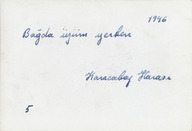 1946
Bağda üzüm yerken
Karacabey Harası
5